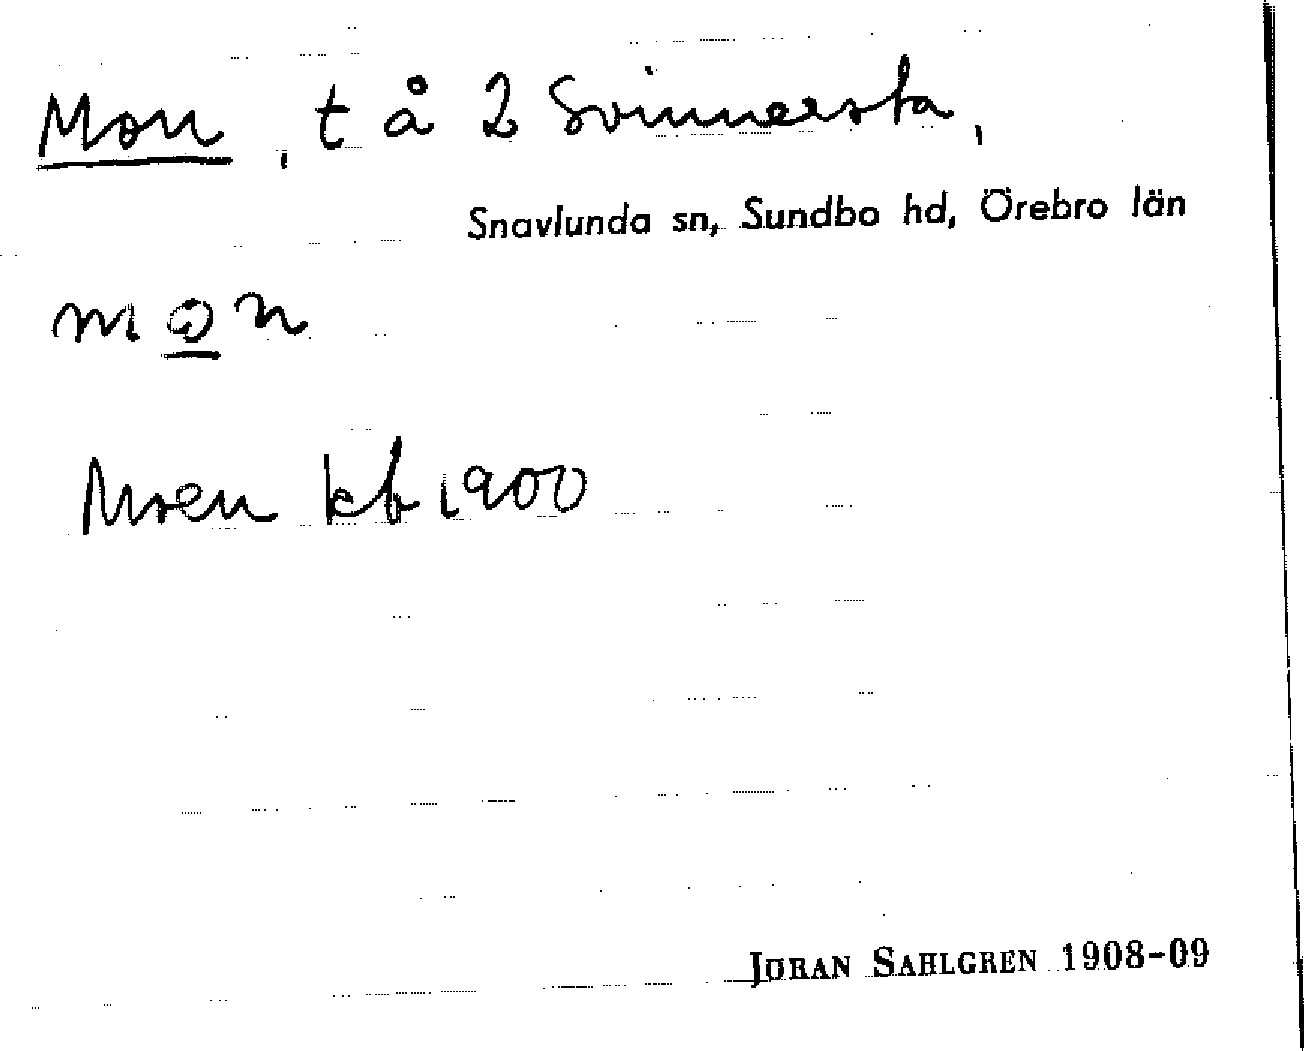 Mon, t å 2 Svinnersta,
Snavlunda sn, Sundbo hd, Örebro län
mon
Moen kb 1900
JÖRAN SAHLGREN 1908-09